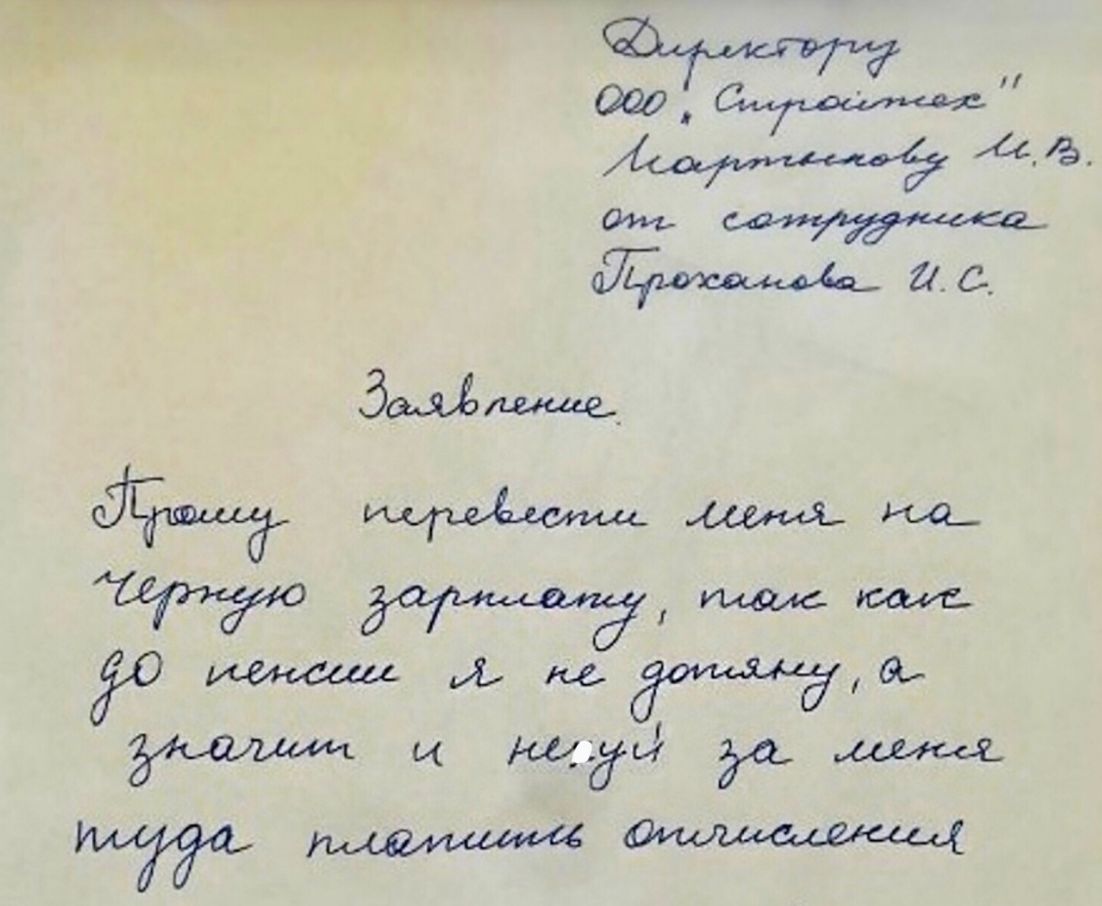 Директору
ООО „Стройтех"
Мартынову И.В.
от сотрудника
Проханова И.С.
Заявление.
Прошу перевести меня на
черную зарплату, так как
до пенсии я не дотяну, а
значит и не уй за меня
туда платить отчисления